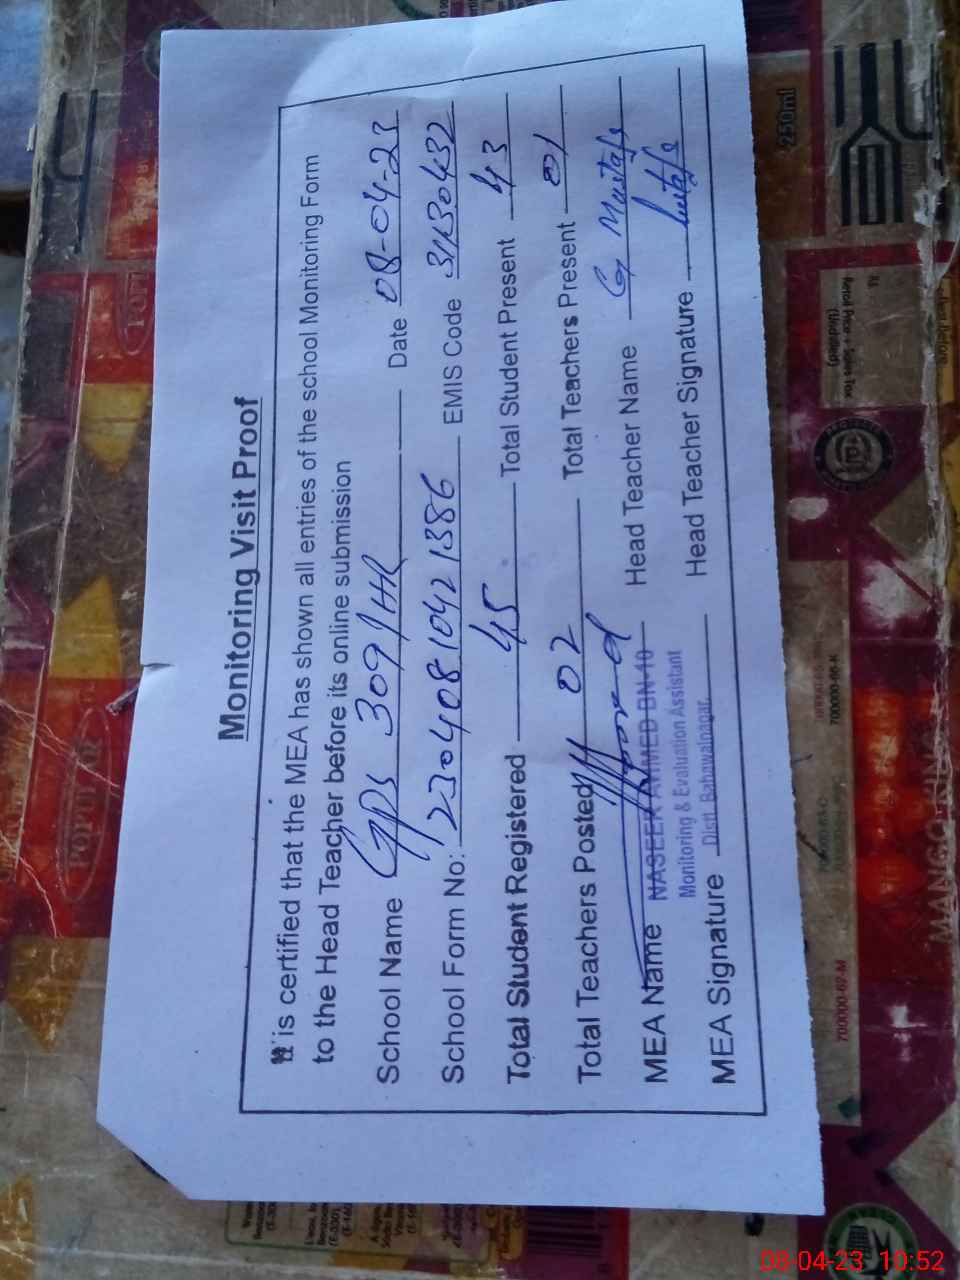 Monitoring Visit Proof
It is certified that the MEA has shown all entries of the school Monitoring Form
to the Head Teacher before its online submission
School Name GPS 309/HR Date 08-04-23
School Form No: 230408 1042 1386 EMIS Code 31130432
Total Student Registered 45 Total Student Present 43
Total Teachers Posted 02 Total Teachers Present 01
MEA Name NASEER AHMED BN-10 Head Teacher Name G Mustafa
Monitoring & Evaluation Assistant
MEA Signature Distt. Bahawalnagar. Head Teacher Signature
250ml
Retail Price + Sales Tax
700000-66-K
700000-62-M
MANGO
08-04-23 10:52